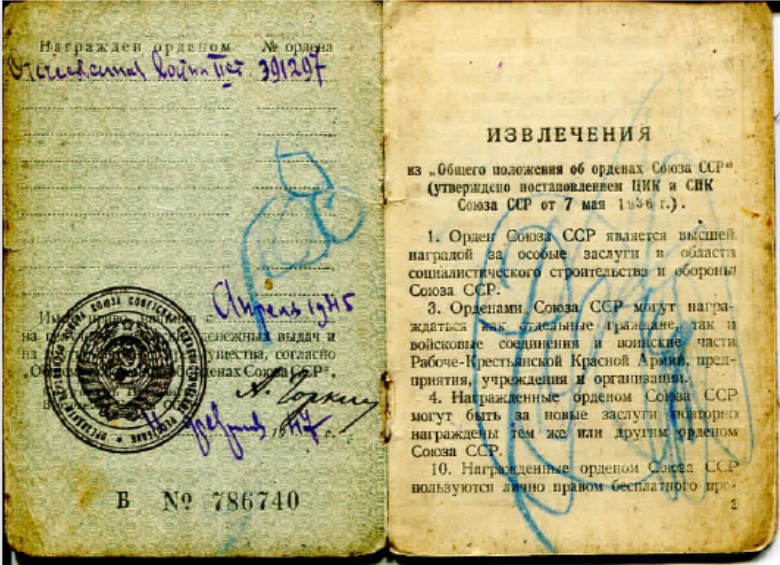 Награжден орденом № ордена
Отечественная война II ст 391297
Апрель 1945
Имеет право, начиная с
на денежных выдач и
на согласно
„Общего орденах Союза ССР“.
А. Горкин
февраля 1947 г.
Б № 786740
ИЗВЛЕЧЕНИЯ
из „Общего положения об орденах Союза ССР“
(утверждено постановлением ЦИК и СНК
Союза ССР от 7 мая 1936 г.).
1. Орден Союза ССР является высшей
наградой за особые заслуги в области
социалистического строительства и обороны
Союза ССР.
3. Орденами Союза ССР могут награ-
ждаться как отдельные граждане, так и
войсковые соединения и воинские части
Рабоче-Крестьянской Красной Армии, пред-
приятия, учреждения и организации.
4. Награжденные орденом Союза ССР
могут быть за новые заслуги повторно
награждены тем же или другим орденом
Союза ССР.
10. Награжденные орденом Союза ССР
пользуются лично правом бесплатного про-